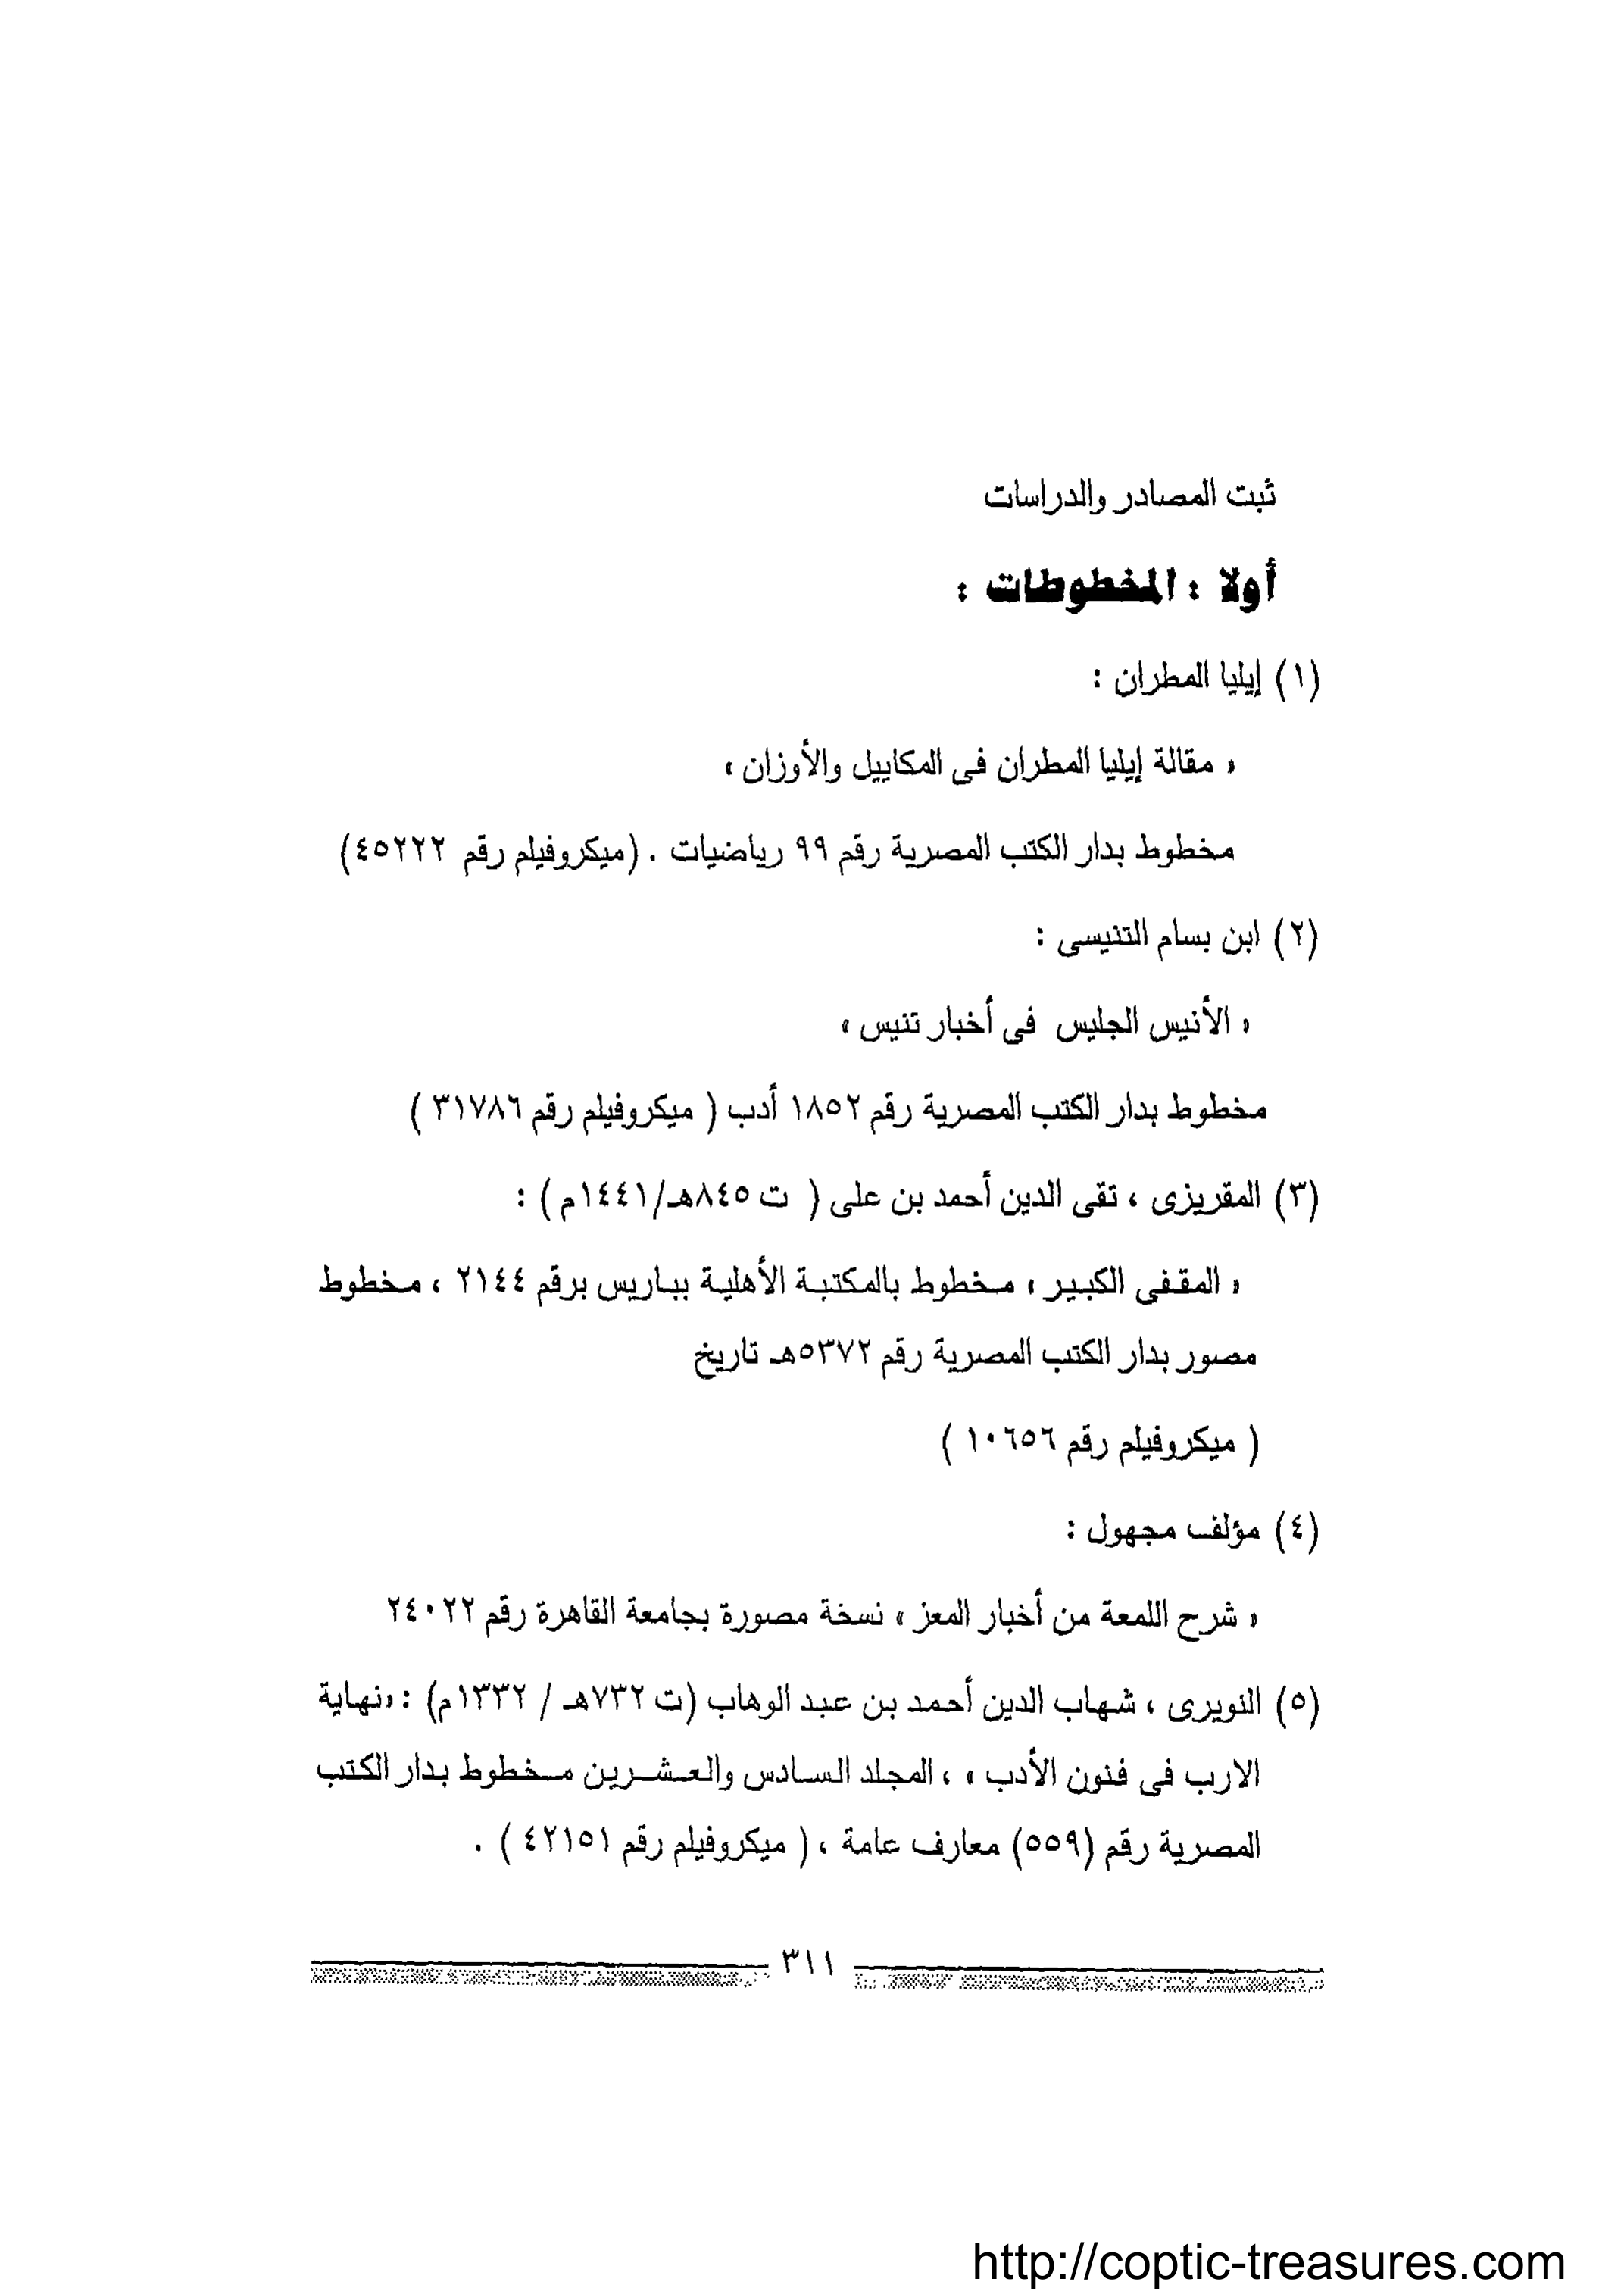 ثبت المصادر والدراسات
أولا : المخطوطات :
(١) إيليا المطران :
« مقالة إيليا المطران فى المكاييل والأوزان »
مخطوط بدار الكتب المصرية رقم ٩٩ رياضيات . (ميكروفيلم رقم ٤٥٢٢٢)
(٢) ابن بسام التنيسى :
« الأنيس الجليس فى أخبار تنيس »
مخطوط بدار الكتب المصرية رقم ١٨٥٢ أدب ( ميكروفيلم رقم ٣١٧٨٦ )
(٣) المقريزى ، تقى الدين أحمد بن على ( ت ٨٤٥هـ/١٤٤١م ) :
« المقفى الكبير » مخطوط بالمكتبة الأهلية بباريس برقم ٢١٤٤ ، مخطوط
مصور بدار الكتب المصرية رقم ٥٣٧٢هـ تاريخ
( ميكروفيلم رقم ١٠٦٥٦ )
(٤) مؤلف مجهول :
« شرح اللمعة من أخبار المعز » نسخة مصورة بجامعة القاهرة رقم ٢٤٠٢٢
(٥) النويرى ، شهاب الدين أحمد بن عبد الوهاب (ت ٧٣٢هـ / ١٣٣٢م) : «نهاية
الارب فى فنون الأدب » ، المجلد السادس والعشرين مخطوط بدار الكتب
المصرية رقم (٥٥٩) معارف عامة ، ( ميكروفيلم رقم ٤٢١٥١ ) .
٣١١
http://coptic-treasures.com